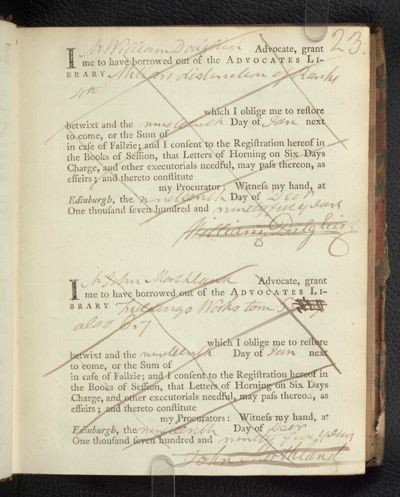 23.
I Mr William Dalgleish Advocate, grant
me to have borrowed out of the ADVOCATES LI-
BRARY Millar distinction of Ranks
4to
which I oblige me to reſtore
betwixt and the nineteenth Day of Jan next
to come, or the Sum of
in caſe of Failzie; and I conſent to the Regiſtration hereof in
the Books of Seſſion, that Letters of Horning on Six Days
Charge, and other executorials needful, may paſs thereon, as
effeirs; and thereto conſtitute
my Procurator: Witneſs my hand, at
Edinburgh, the nineteenth Day of Decr
One thouſand ſeven hundred and ninety five years
William Dalgleish
I Mr John Morthland Advocate, grant
me to have borrowed out of the ADVOCATES LI-
BRARY Fieldings Works tom 5
also 6. 7
which I oblige me to reſtore
betwixt and the nineteenth Day of Jan next
to come, or the Sum of
in caſe of Failzie; and I conſent to the Regiſtration hereof in
the Books of Seſſion, that Letters of Horning on Six Days
Charge, and other executorials needful, may paſs thereon, as
effeirs; and thereto conſtitute
my Procurators: Witneſs my hand, at
Edinburgh, the nineteenth Day of Decr
One thouſand ſeven hundred and ninety five years
John Morthland